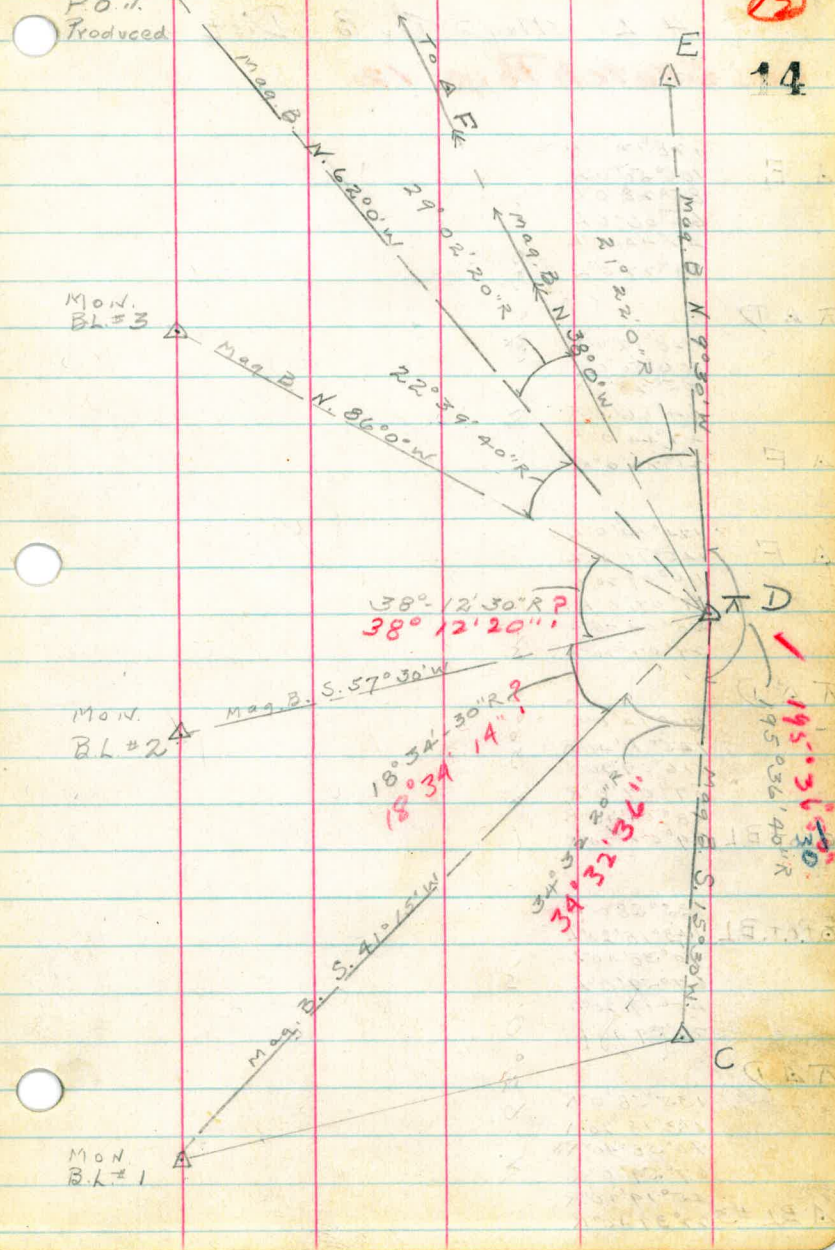 P.O.T.
Produced
E
14
To △ F
Mag. B. N. 62°0'W
29° 02' 20"R
Mag. B. N 38°0'W.
21° 22' 0"R
Mag. B. N. 9°30'W
MON.
BL.#3
Mag. B. N. 86°0'W
22° 39' 40"R
38°-12'30"R ?
38° 12' 20"
⊼ D
Mag. B. S. 57°30'W
MON.
B.L.#2
18° 34'-30"R ?
18° 34' 14"
195° 36' 40"R
195° 36'
30
34° 32' 20"R
34° 32' 36"
Mag. B. S. 15°30'W.
Mag. B. S. 41°15'W
C
MON.
B.L.#1